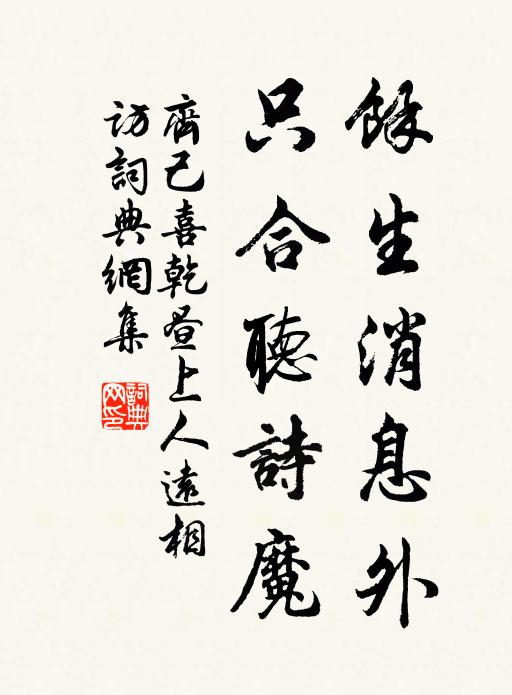 餘生消息外
只合聽詩魔
齊己喜乾晝上人遠相
訪詞典網集
詞典網印